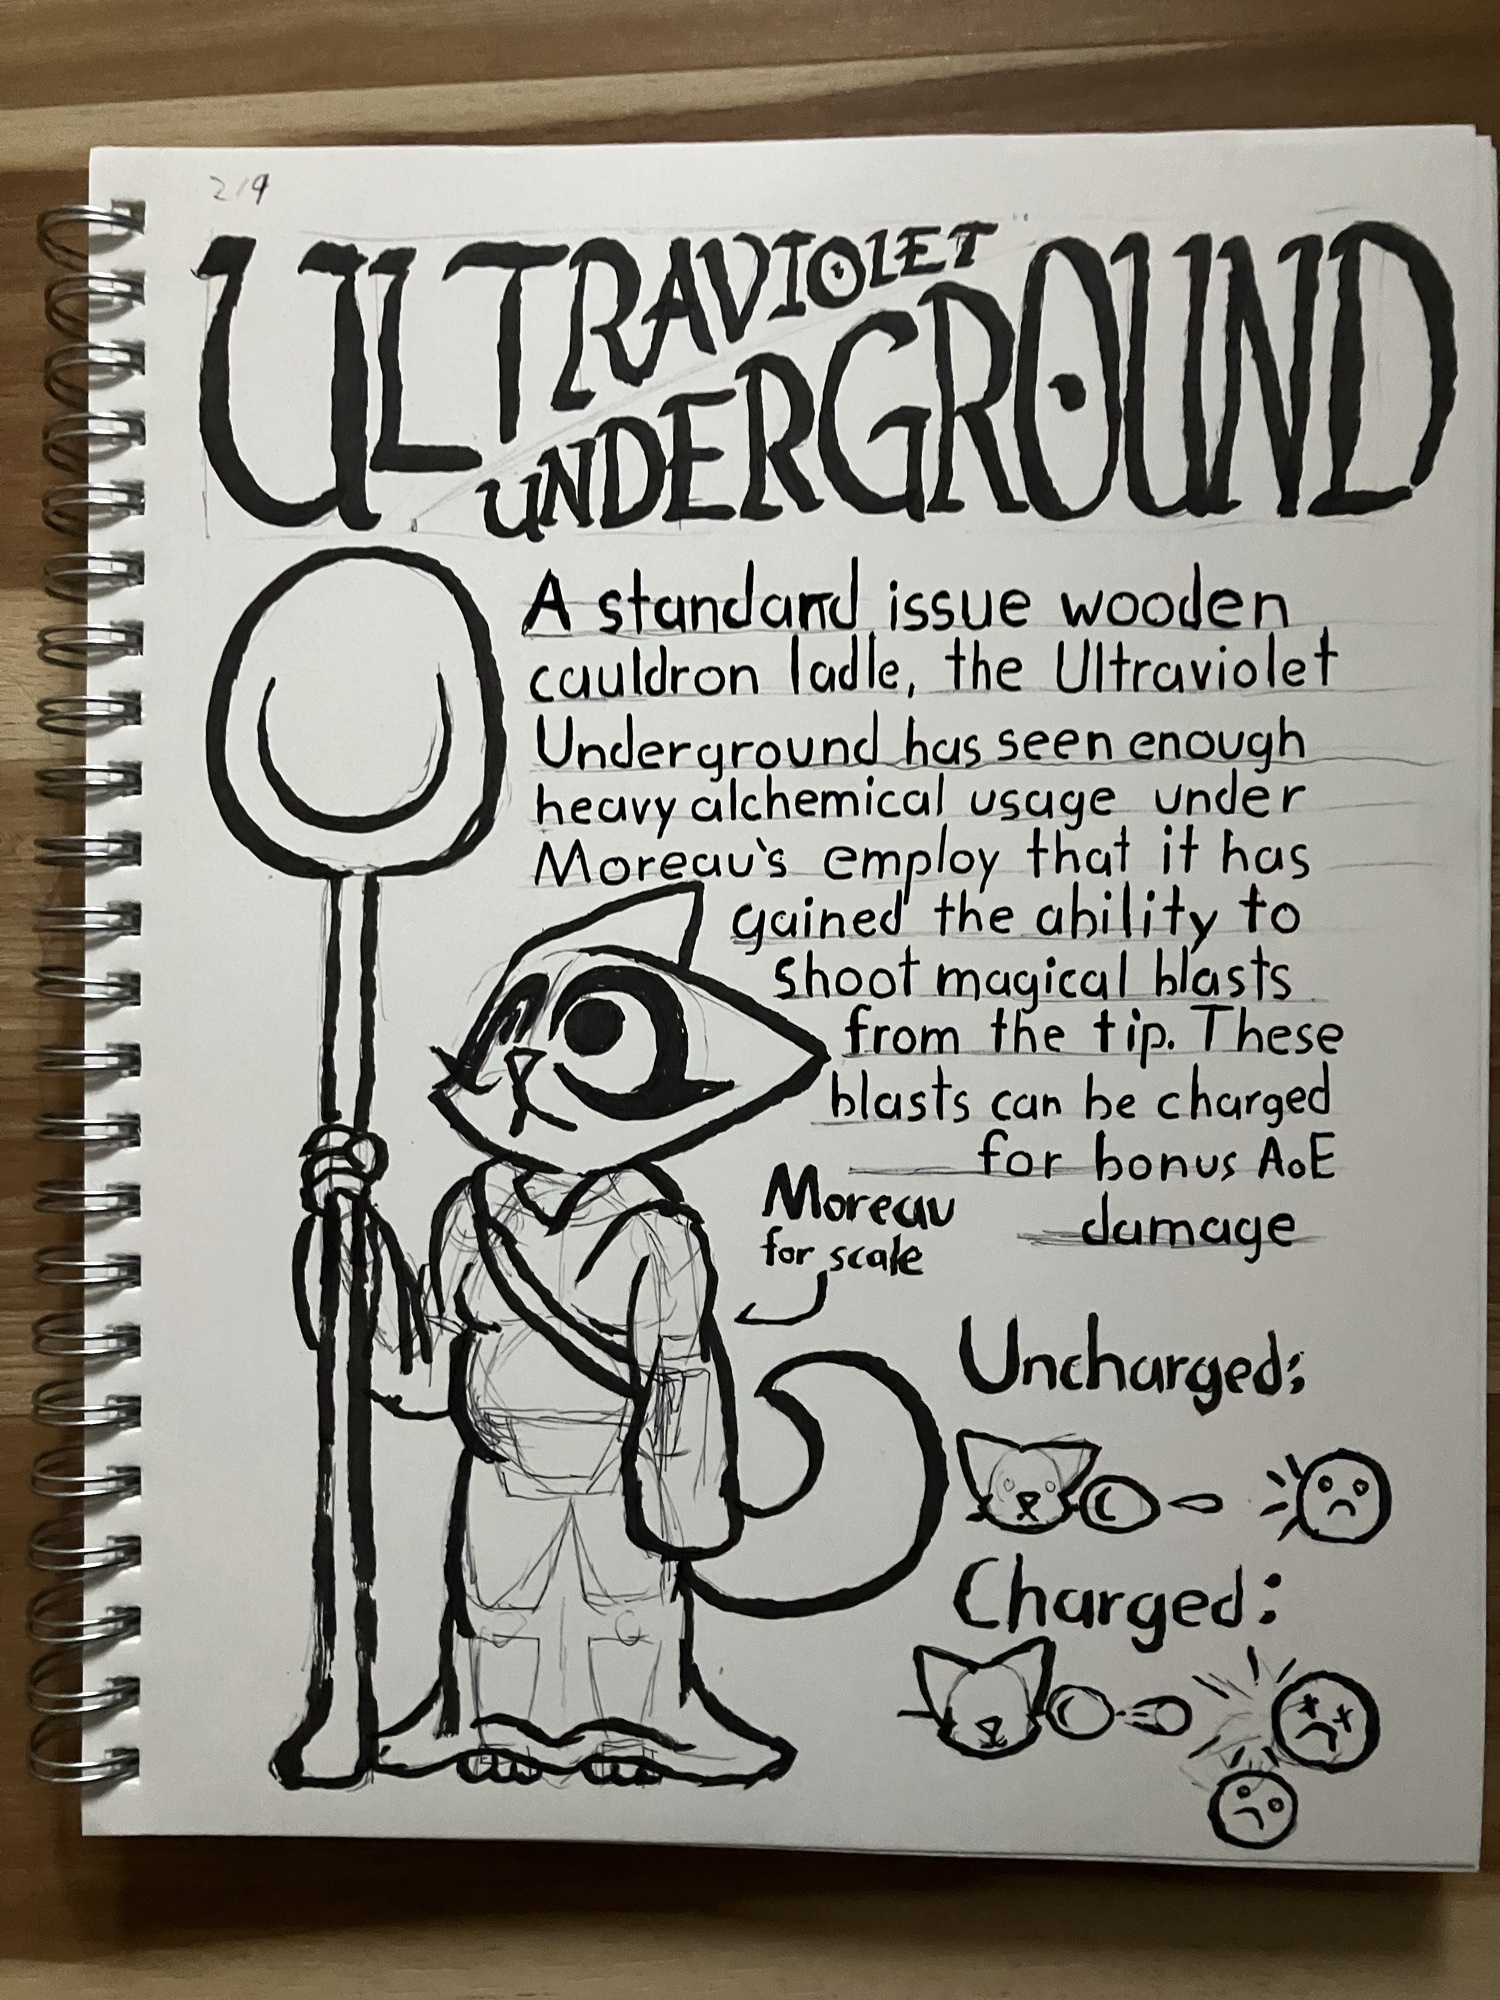 219
ULTRAVIOLET
UNDERGROUND
A standard issue wooden
cauldron ladle, the Ultraviolet
Underground has seen enough
heavy alchemical usage under
Moreau's employ that it has
gained the ability to
shoot magical blasts
from the tip. These
blasts can be charged
for bonus AoE
damage
Moreau
for scale
Uncharged:
Charged: